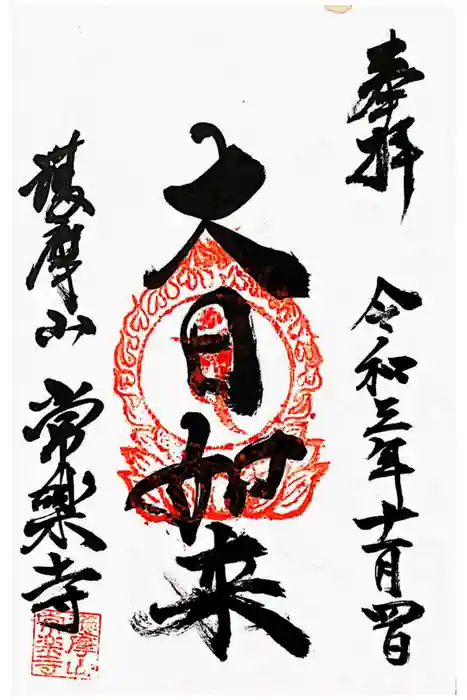 奉拝
令和三年十一月四日
大日如来
護摩山
常樂寺
護摩山
常楽寺